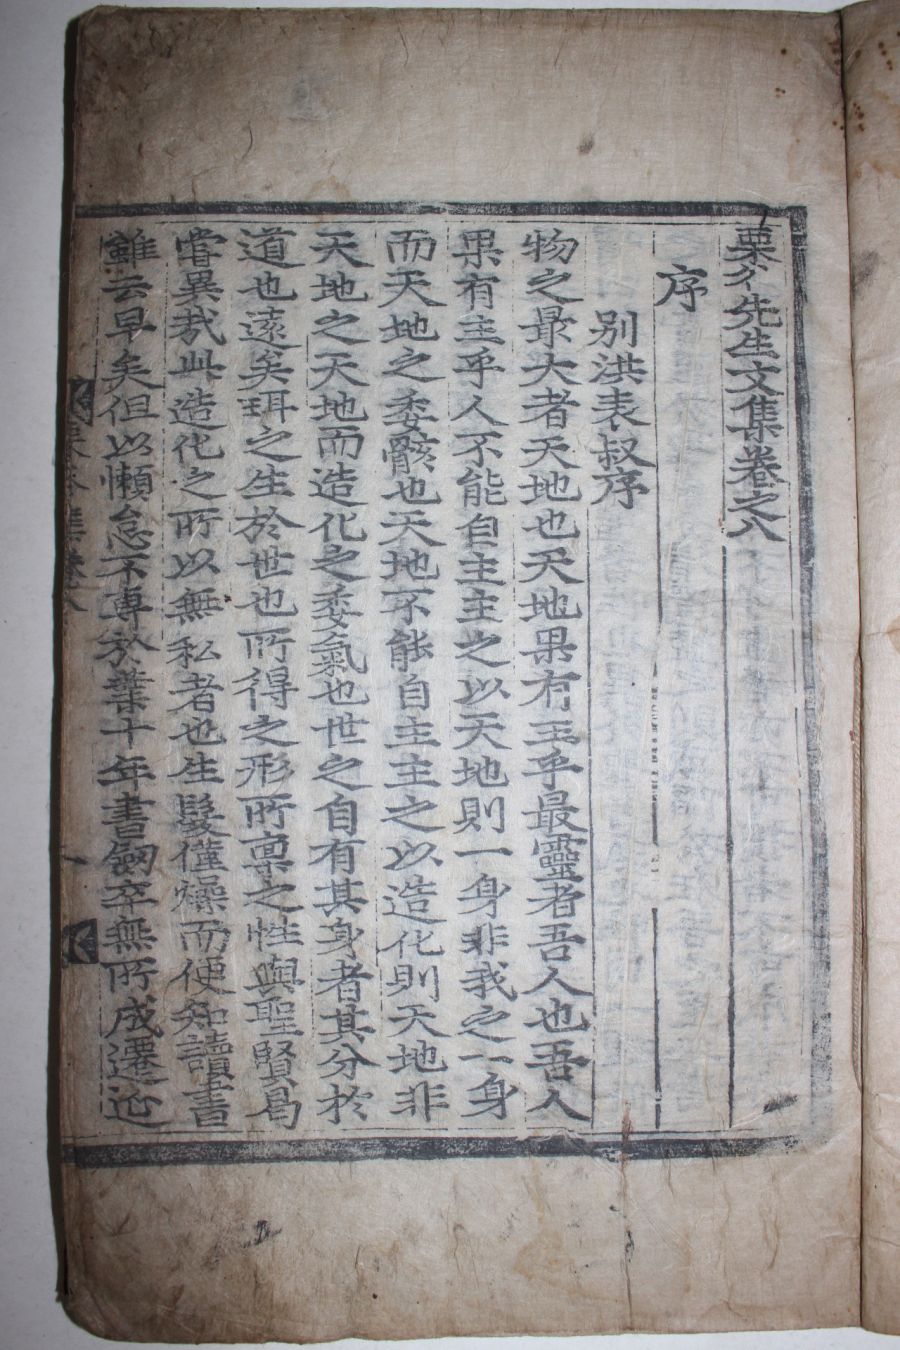 栗谷先生文集卷之八
序
別洪表叔序
物之最大者天地也天地果有主乎最靈者吾人也吾人
果有主乎人不能自主主之以天地則一身非我之一身
而天地之委骸也天地不能自主主之以造化則天地非
天地之天地而造化之委氣也世之自有其身者其分於
道也遠矣珥之生於世也所得之形所稟之性與聖賢曷
嘗異哉此造化之所以無私者也生髮僅燥而便知讀書
雖云早矣但以懶怠不專於業十年書劒卒無所成遷延